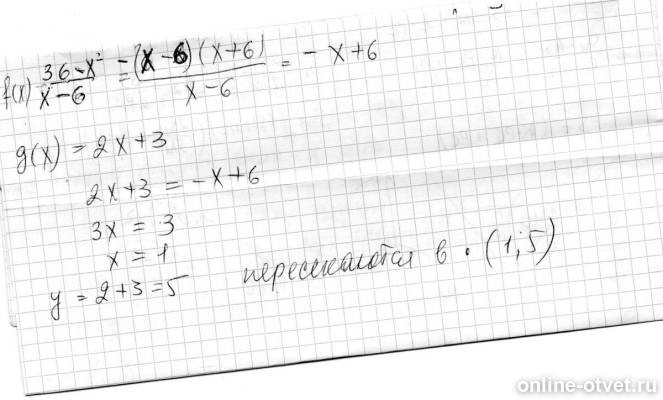 f(x) (36-x²)/(x-6) = -(x-6)(x+6)/(x-6) = -x+6
g(x) = 2x+3
2x+3 = -x+6
3x = 3
x = 1
y = 2+3=5 пересекаются в • (1;5)
online-otvet.ru